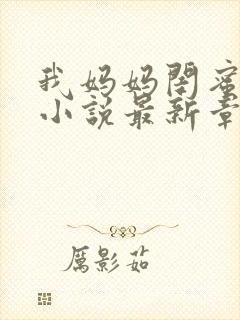 我妈妈闺蜜
小说最新章
厲影茹